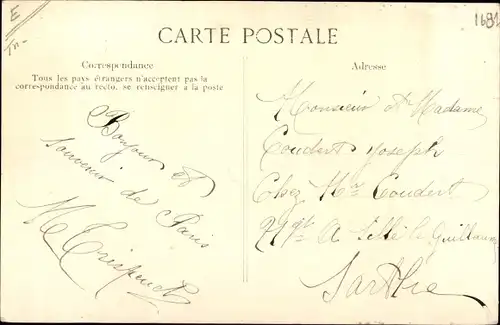 E
1681
CARTE POSTALE
Correspondance
Tous les pays étrangers n'acceptent pas la
correspondance au recto, se renseigner à la poste
Bonjour et
souvenir de Paris
Adresse
Monsieur et Madame
Coudert Joseph
Chez Mr Coudert
A Sillé le Guillaume
Sarthe